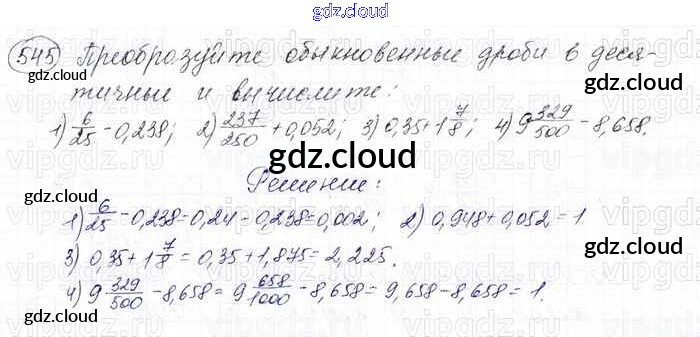 gdz.cloud
545 Преобразуйте обыкновенные дроби в деся-
gdz.cloud gdz.cloud
тичные и вычислите:
1) 6/25 - 0,238; 2) 237/250 + 0,052; 3) 0,35 + 1 7/8; 4) 9 329/500 - 8,658.
gdz.cloud
Решение:
gdz.cloud gdz.cloud
1) 6/25 - 0,238 = 0,24 - 0,238 = 0,002; 2) 0,948 + 0,052 = 1
3) 0,35 + 1 7/8 = 0,35 + 1,875 = 2,225.
gdz.cloud
4) 9 329/500 - 8,658 = 9 658/1000 - 8,658 = 9,658 - 8,658 = 1.
gdz.cloud gdz.cloud